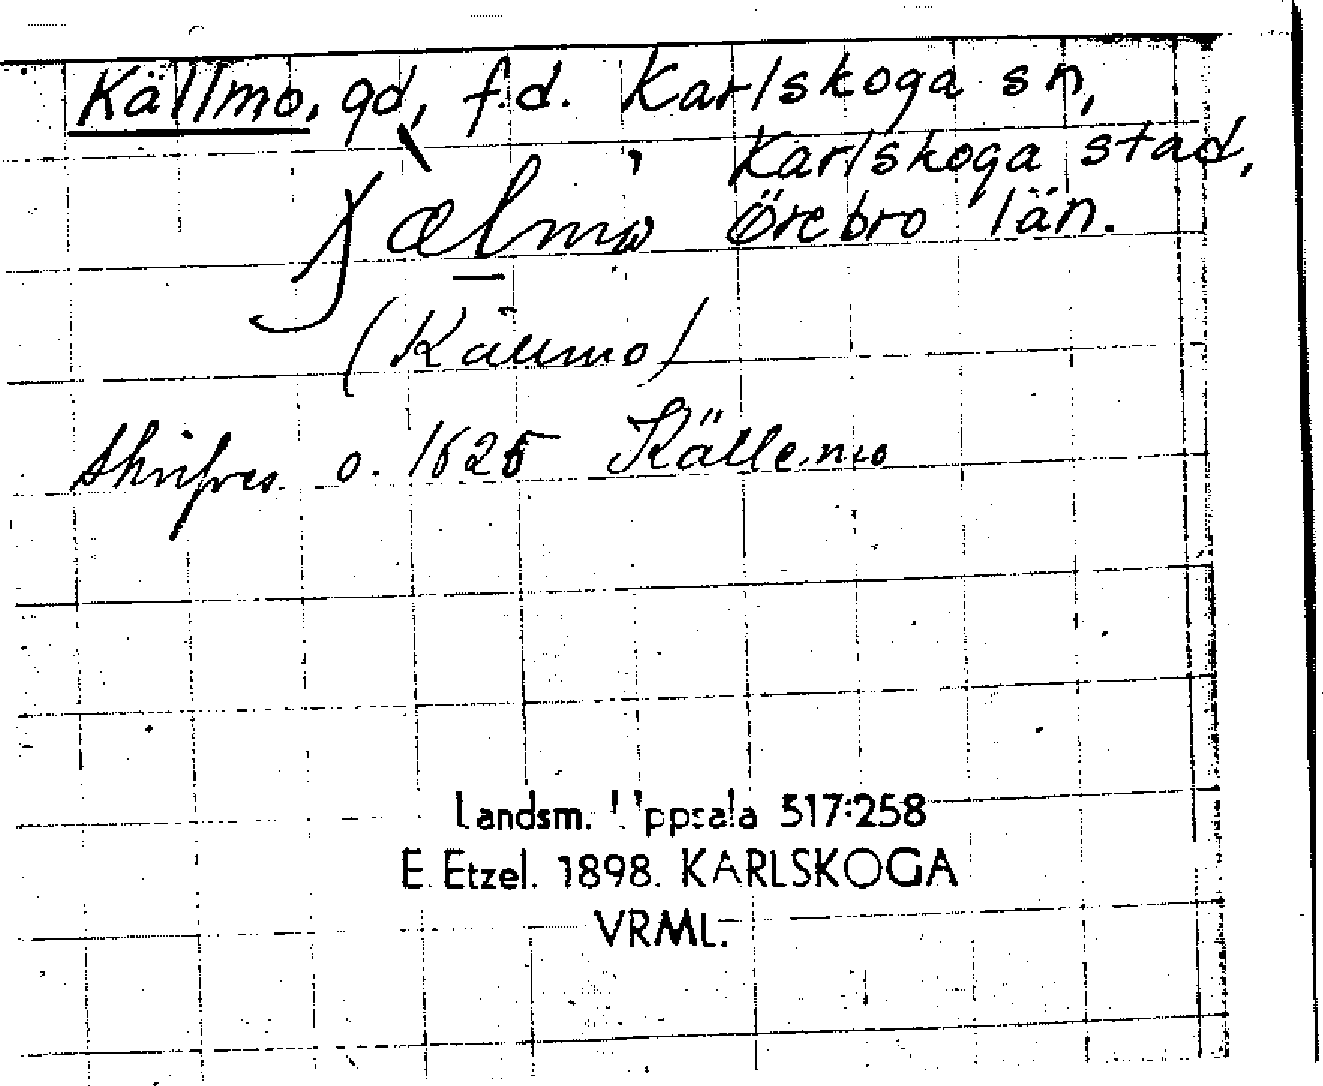 Källmo, gd, f.d. Karlskoga sn,
Karlskoga stad,
Örebro län.
(Källmo)
Skrifves o. 1625 Källemo
Landsm. Uppsala 517:258
E. Etzel. 1898. KARLSKOGA
VRML.